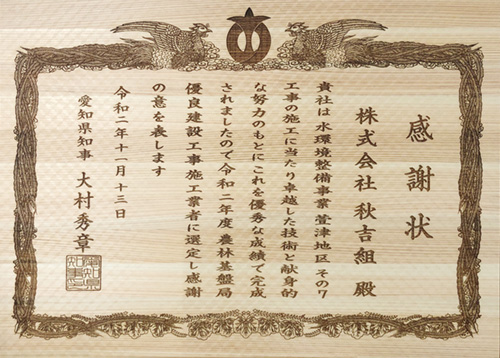 感謝状
株式会社 秋吉組 殿
貴社は 水環境整備事業 萱津地区 その7
工事の施工に当たり卓越した技術と献身的
な努力のもとにこれを優秀な成績で完成
されましたので令和二年度 農林基盤局
優良建設工事施工業者に選定し感謝
の意を表します
令和二年十一月十三日
愛知県知事 大村秀章